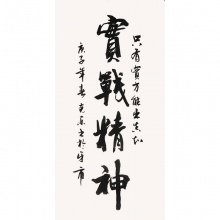 只有實方能出真知
實戰精神
庚子年春